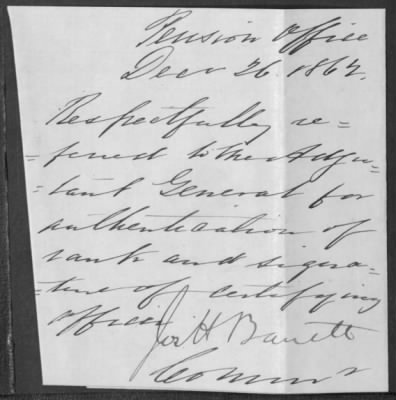 Pension Office
Decr 26. 1862.
Respectfully re=
=ferred to the Adju=
=tant General for
authentication of
rank and signa=
=ture of certifying
officer.
Jos H Barrett
Commr